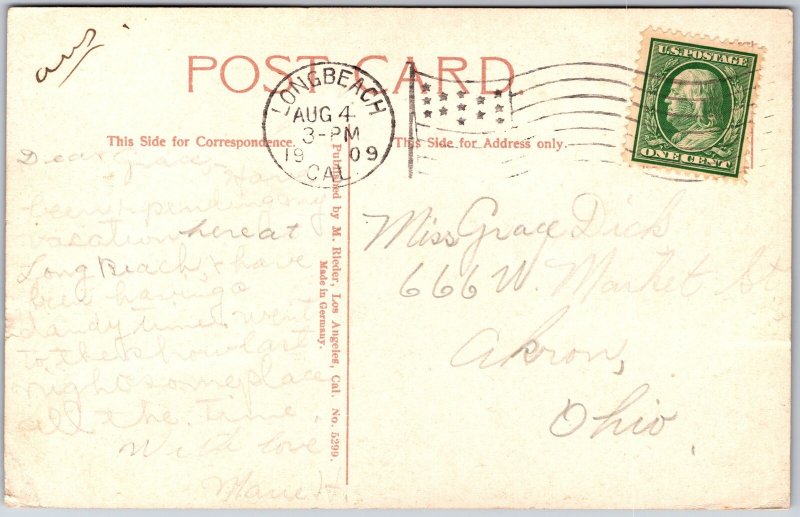 ans
POST CARD.
LONGBEACH
AUG 4
3-PM
19 09
CAL
U.S. POSTAGE
ONE CENT
This Side for Correspondence.
This Side for Address only.
Published by M. Rieder, Los Angeles, Cal. No. 5299.
Made in Germany.
Dear Grace,
Have
been spending my
vacation here at
Long Beach, & have
been having a
dandy time. went
to the show last
night & some place
all the time.
With love
Marie H.
Miss Grace Dick
666 W. Market St
Akron,
Ohio.